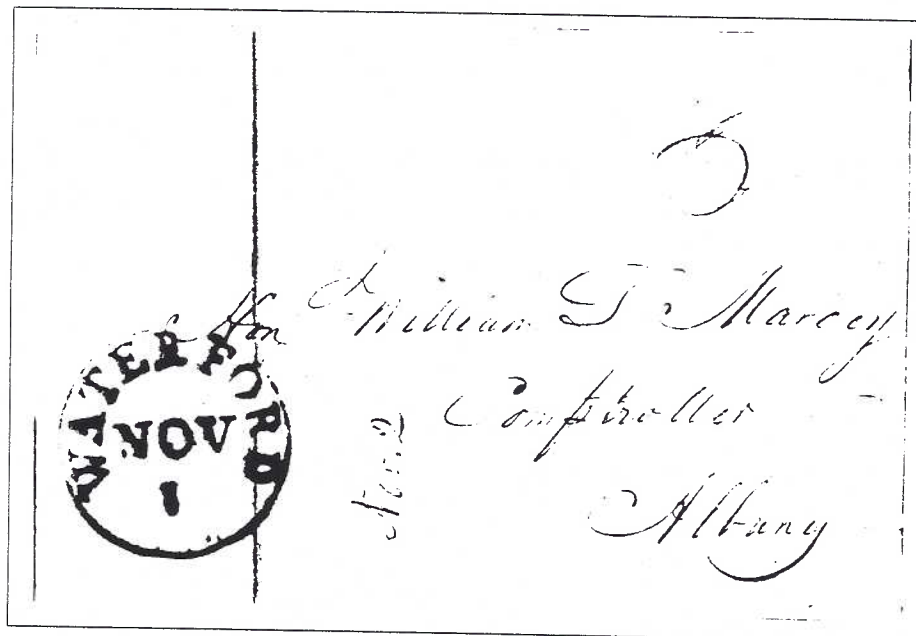 Hon William L Marcey
Comptroller
Albany
WATERFORD
NOV
1